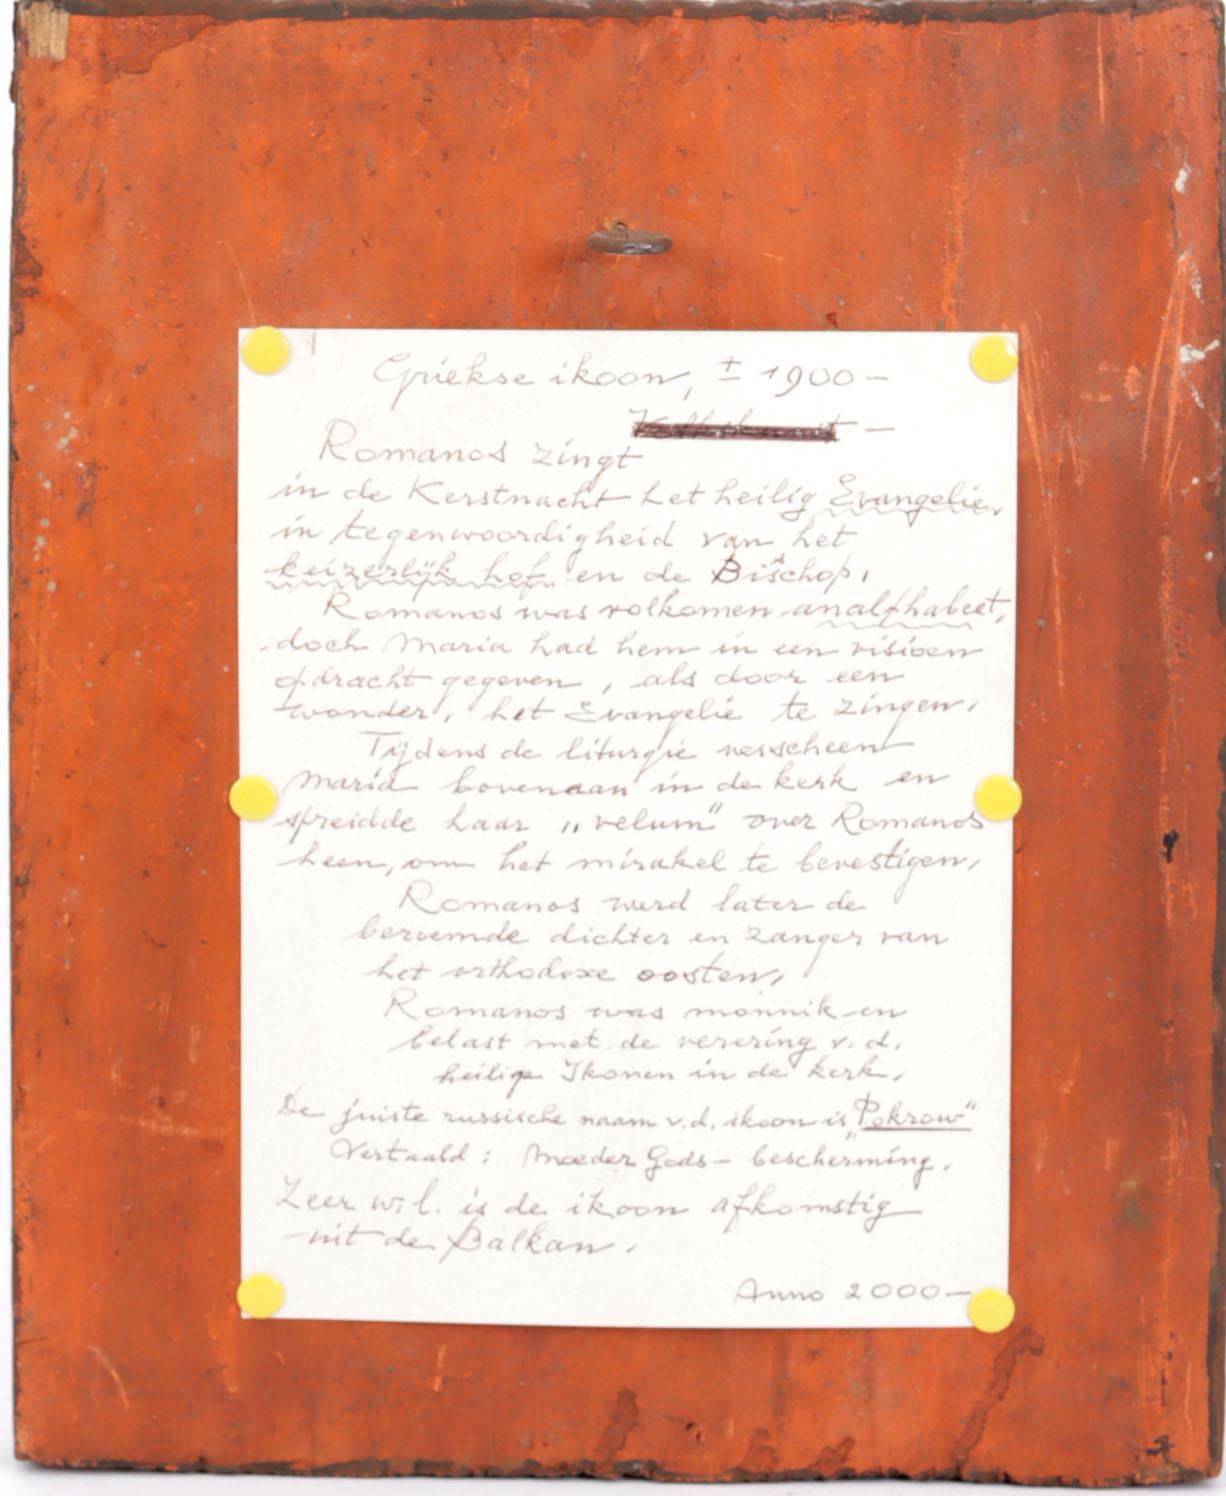 Griekse ikoon, ± 1900 –
–
Romanos zingt
in de Kerstnacht het heilig Evangelie,
in tegenwoordigheid van het
keizerlijk hof en de Bisschop,
Romanos was volkomen analphabeet,
doch Maria had hem in een visioen
opdracht gegeven, als door een
wonder, het Evangelie te zingen,
Tijdens de liturgie verscheen
Maria bovenaan in de kerk en
spreidde haar „velum" over Romanos
heen, om het mirakel te bevestigen,
Romanos werd later de
beroemde dichter en zanger van
het orthodoxe oosten,
Romanos was monnik en
belast met de verering v. d.
heilige Ikonen in de kerk.
De juiste russische naam v.d. ikoon is „Pokrow"
Vertaald: Moeder Gods – bescherming.
Zeer w.l. is de ikoon afkomstig
uit de Balkan.
Anno 2000 –